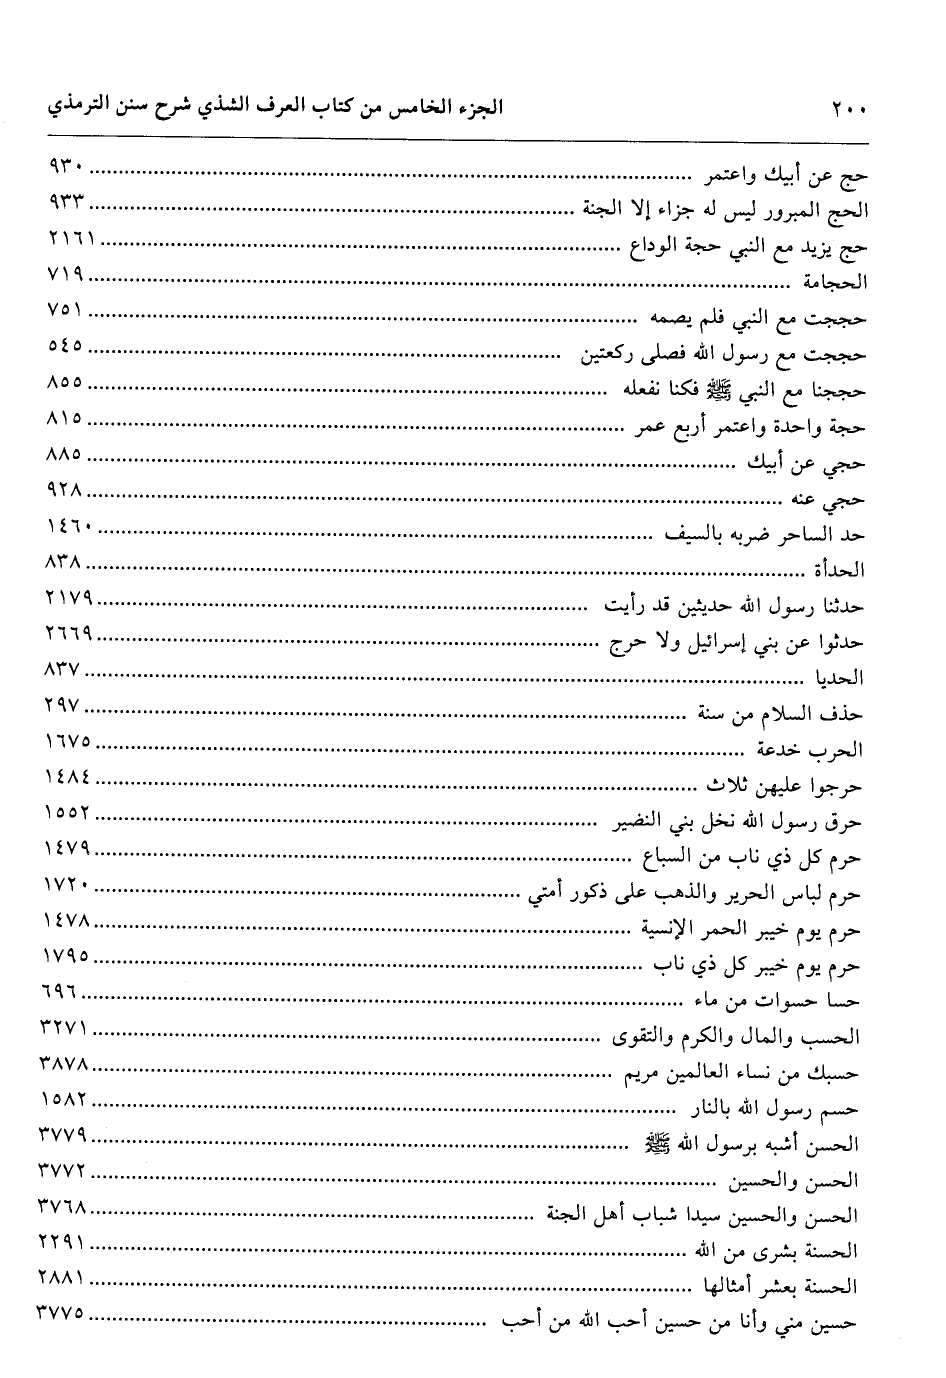 ٢٠٠ الجزء الخامس من كتاب العرف الشذي شرح سنن الترمذي
حج عن أبيك واعتمر ........ ٩٣٠
الحج المبرور ليس له جزاء إلا الجنة ........ ٩٣٣
حج يزيد مع النبي حجة الوداع ........ ٢١٦١
الحجامة ........ ٧١٩
حججت مع النبي فلم يصمه ........ ٧٥١
حججت مع رسول الله فصلى ركعتين ........ ٥٤٥
حججنا مع النبي ﷺ فكنا نفعله ........ ٨٥٥
حجة واحدة واعتمر أربع عمر ........ ٨١٥
حجي عن أبيك ........ ٨٨٥
حجي عنه ........ ٩٢٨
حد الساحر ضربه بالسيف ........ ١٤٦٠
الحدأة ........ ٨٣٨
حدثنا رسول الله حديثين قد رأيت ........ ٢١٧٩
حدثوا عن بني إسرائيل ولا حرج ........ ٢٦٦٩
الحديا ........ ٨٣٧
حذف السلام من سنة ........ ٢٩٧
الحرب خدعة ........ ١٦٧٥
حرجوا عليهن ثلاث ........ ١٤٨٤
حرق رسول الله نخل بني النضير ........ ١٥٥٢
حرم كل ذي ناب من السباع ........ ١٤٧٩
حرم لباس الحرير والذهب على ذكور أمتي ........ ١٧٢٠
حرم يوم خيبر الحمر الإنسية ........ ١٤٧٨
حرم يوم خيبر كل ذي ناب ........ ١٧٩٥
حسا حسوات من ماء ........ ٦٩٦
الحسب والمال والكرم والتقوى ........ ٣٢٧١
حسبك من نساء العالمين مريم ........ ٣٨٧٨
حسم رسول الله بالنار ........ ١٥٨٢
الحسن أشبه برسول الله ﷺ ........ ٣٧٧٩
الحسن والحسين ........ ٣٧٧٢
الحسن والحسين سيدا شباب أهل الجنة ........ ٣٧٦٨
الحسنة بشرى من الله ........ ٢٢٩١
الحسنة بعشر أمثالها ........ ٢٨٨١
حسين مني وأنا من حسين أحب الله من أحب ........ ٣٧٧٥